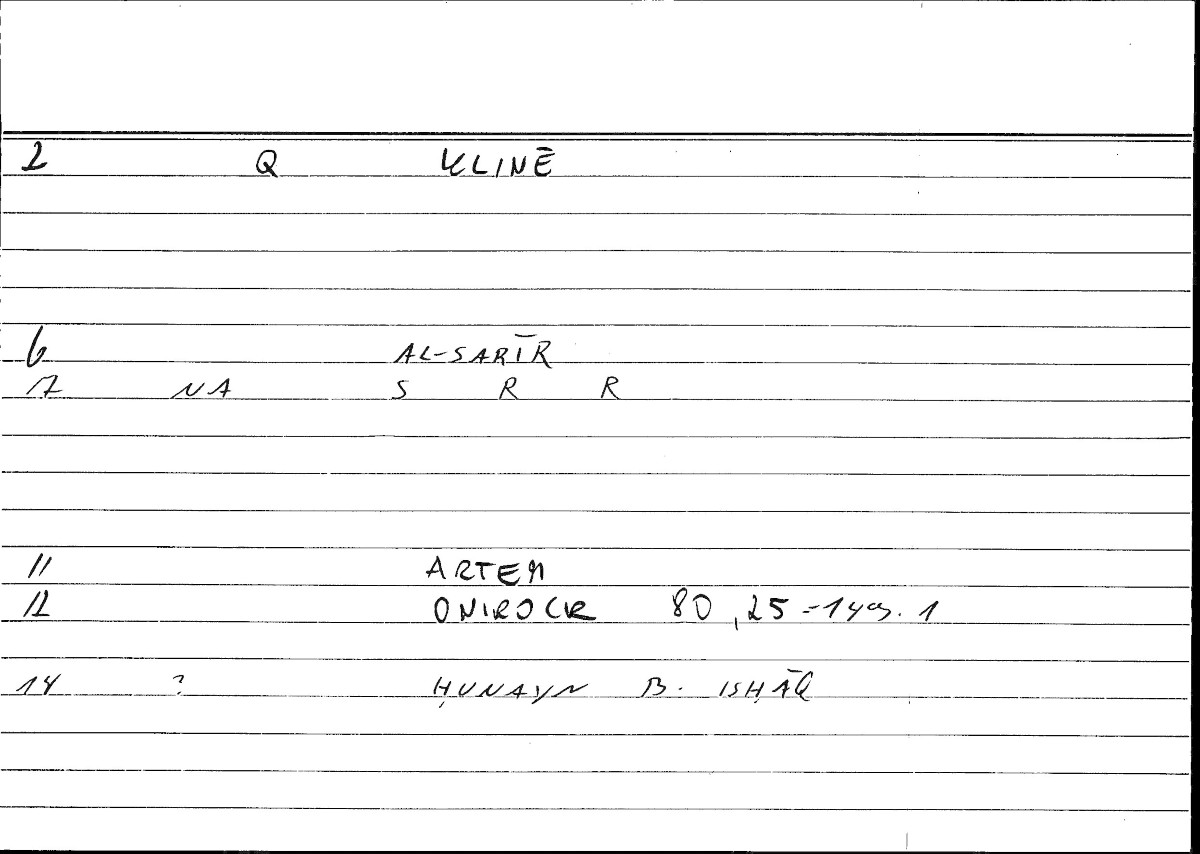 2 Q KLINĒ
6 AL-SARĪR
17 NA S R R
11 ARTEM
12 ONIROCR 80,25 =
14 ? ḤUNAYN B. ISḤĀQ